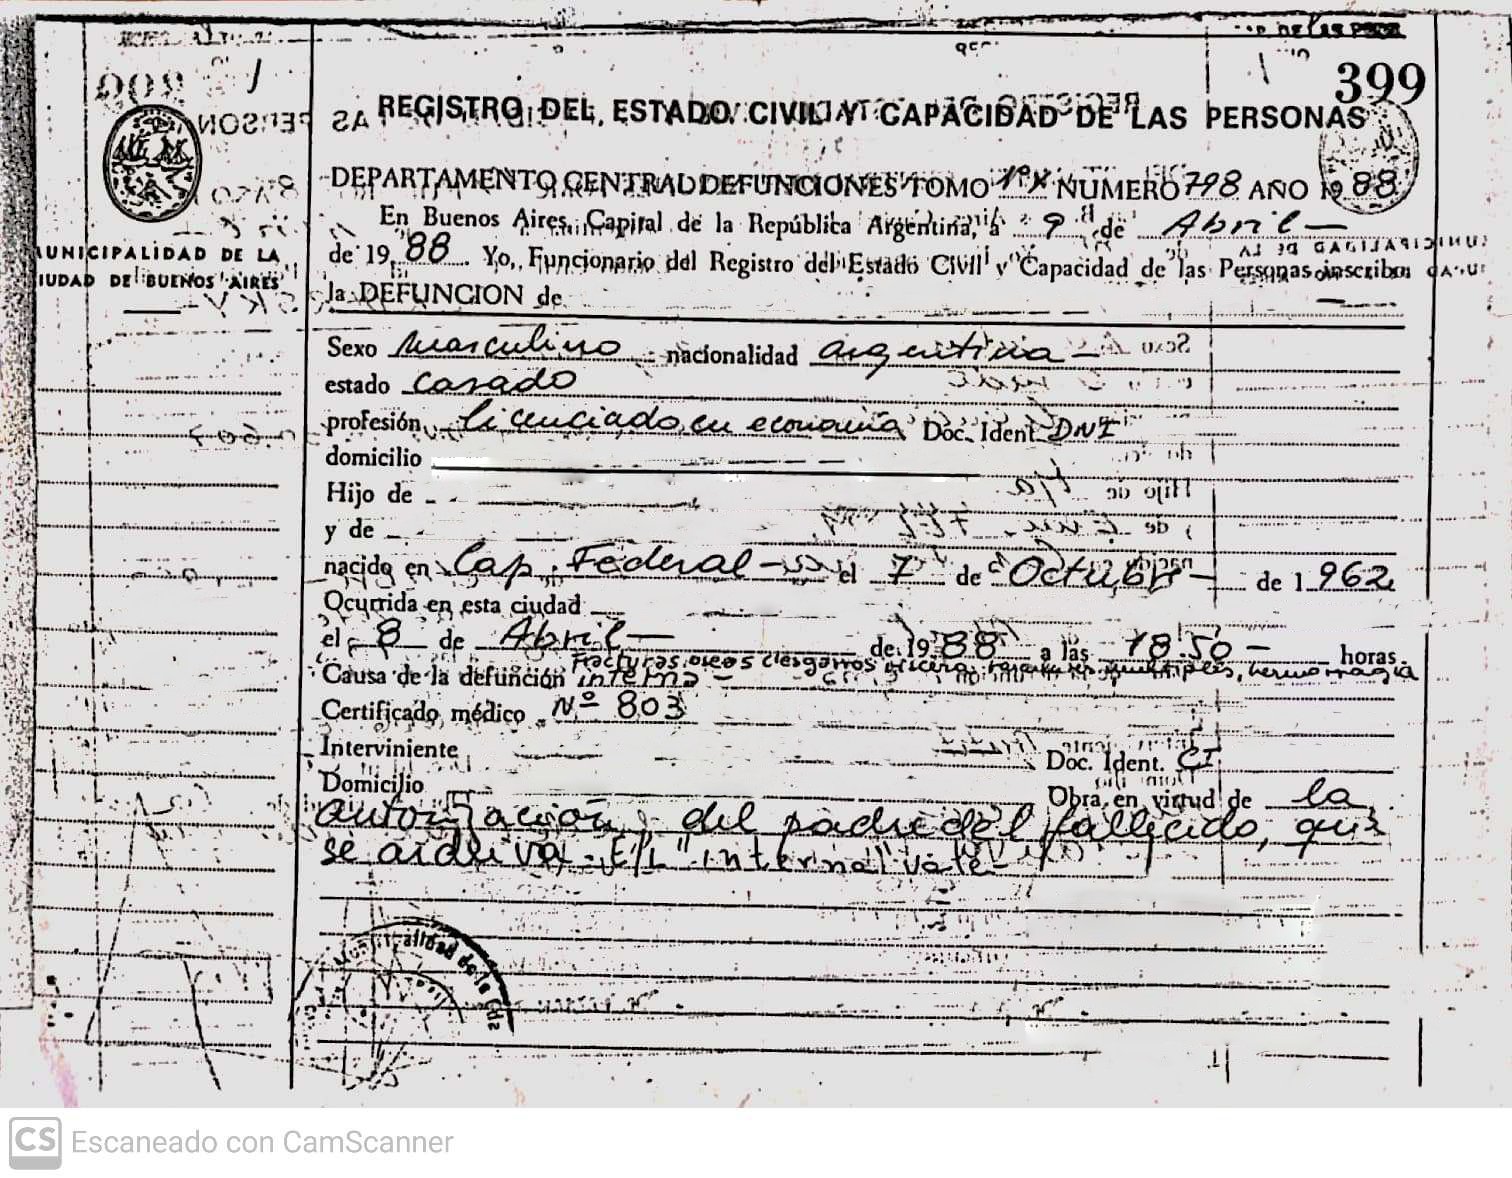 399
REGISTRO DEL ESTADO CIVIL Y CAPACIDAD DE LAS PERSONAS
DEPARTAMENTO CENTRAL DEFUNCIONES TOMO NUMERO 798 AÑO 1988
En Buenos Aires, Capital de la República Argentina, a 9 de Abril
de 1988. Yo, Funcionario del Registro del Estado Civil y Capacidad de las Personas inscribo
la DEFUNCION de
MUNICIPALIDAD DE LA
CIUDAD DE BUENOS AIRES
Sexo masculino nacionalidad argentina
estado casado
profesión licenciado en economía Doc. Ident. DNI
domicilio
Hijo de
y de
nacido en Cap. Federal el 7 de Octubre de 1962
Ocurrida en esta ciudad
el 8 de Abril de 1988 a las 18.50 horas
Causa de la defunción Fracturas oseas desgarros multiples, hemorragia
interna
Certificado médico Nº 803
Interviniente Doc. Ident. CI
Domicilio Obra en virtud de la
autorización del padre del fallecido, que
se archiva. E/L "interna" vale
Municipalidad de la
CS Escaneado con CamScanner